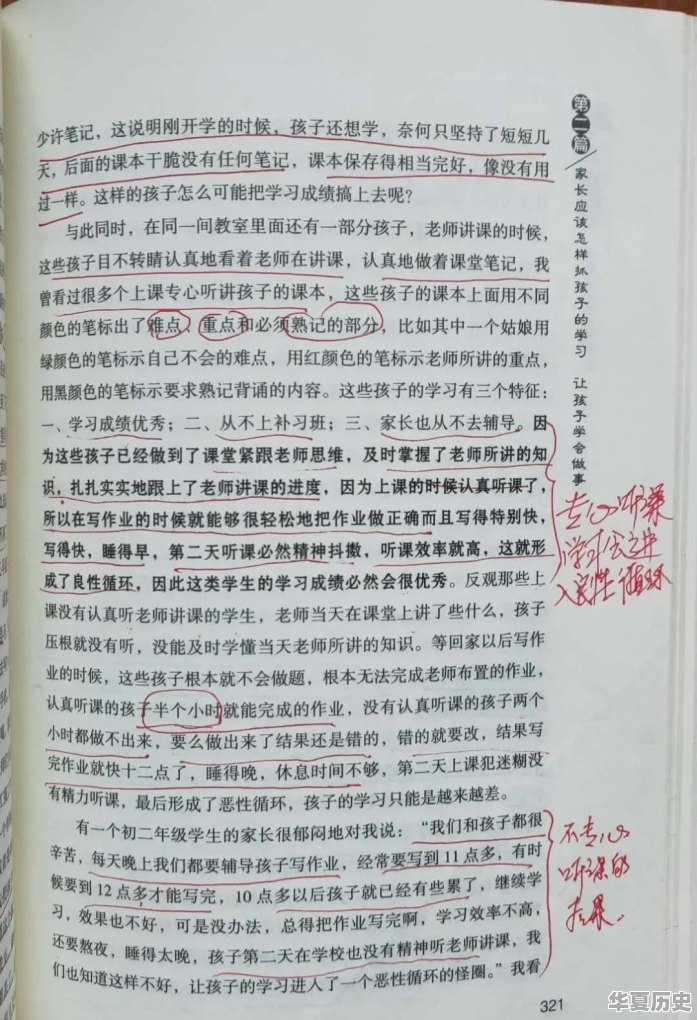 少许笔记，这说明刚开学的时候，孩子还想学，奈何只坚持了短短几
天，后面的课本干脆没有任何笔记，课本保存得相当完好，像没有用
过一样。这样的孩子怎么可能把学习成绩搞上去呢？
与此同时，在同一间教室里面还有一部分孩子，老师讲课的时候，
这些孩子目不转睛认真地看着老师在讲课，认真地做着课堂笔记，我
曾看过很多个上课专心听讲孩子的课本，这些孩子的课本上面用不同
颜色的笔标出了难点、重点和必须熟记的部分，比如其中一个姑娘用
绿颜色的笔标示自己不会的难点，用红颜色的笔标示老师所讲的重点，
用黑颜色的笔标示要求熟记背诵的内容。这些孩子的学习有三个特征：
一、学习成绩优秀；二、从不上补习班；三、家长也从不去辅导。因
为这些孩子已经做到了课堂紧跟老师思维，及时掌握了老师所讲的知
识，扎扎实实地跟上了老师讲课的进度，因为上课的时候认真听课了，
所以在写作业的时候就能够很轻松地把作业做正确而且写得特别快，
写得快，睡得早，第二天听课必然精神抖擞，听课效率就高，这就形
成了良性循环，因此这类学生的学习成绩必然会很优秀。反观那些上
课没有认真听老师讲课的学生，老师当天在课堂上讲了些什么，孩子
压根就没有听，没能及时学懂当天老师所讲的知识。等回家以后写作
业的时候，这些孩子根本就不会做题，根本无法完成老师布置的作业，
认真听课的孩子半个小时就能完成的作业，没有认真听课的孩子两个
小时都做不出来，要么做出来了结果还是错的，错的就要改，结果写
完作业就快十二点了，睡得晚，休息时间不够，第二天上课犯迷糊没
有精力听课，最后形成了恶性循环，孩子的学习只能是越来越差。
有一个初二年级学生的家长很郁闷地对我说：“我们和孩子都很
辛苦，每天晚上我们都要辅导孩子写作业，经常要写到11点多，有时
候要到12点多才能写完，10点多以后孩子就已经有些累了，继续学
习，效果也不好，可是没办法，总得把作业写完啊，学习效率不高，
还要熬夜，睡得太晚，孩子第二天在学校也没有精神听老师讲课，我
们也知道这样不好，让孩子的学习进入了一个恶性循环的怪圈。”我看
321
第二篇/家长应该怎样抓孩子的学习 让孩子学会做事
专心听课
学习会进
入良性循环
不专心
听课的
后果.
华夏历史